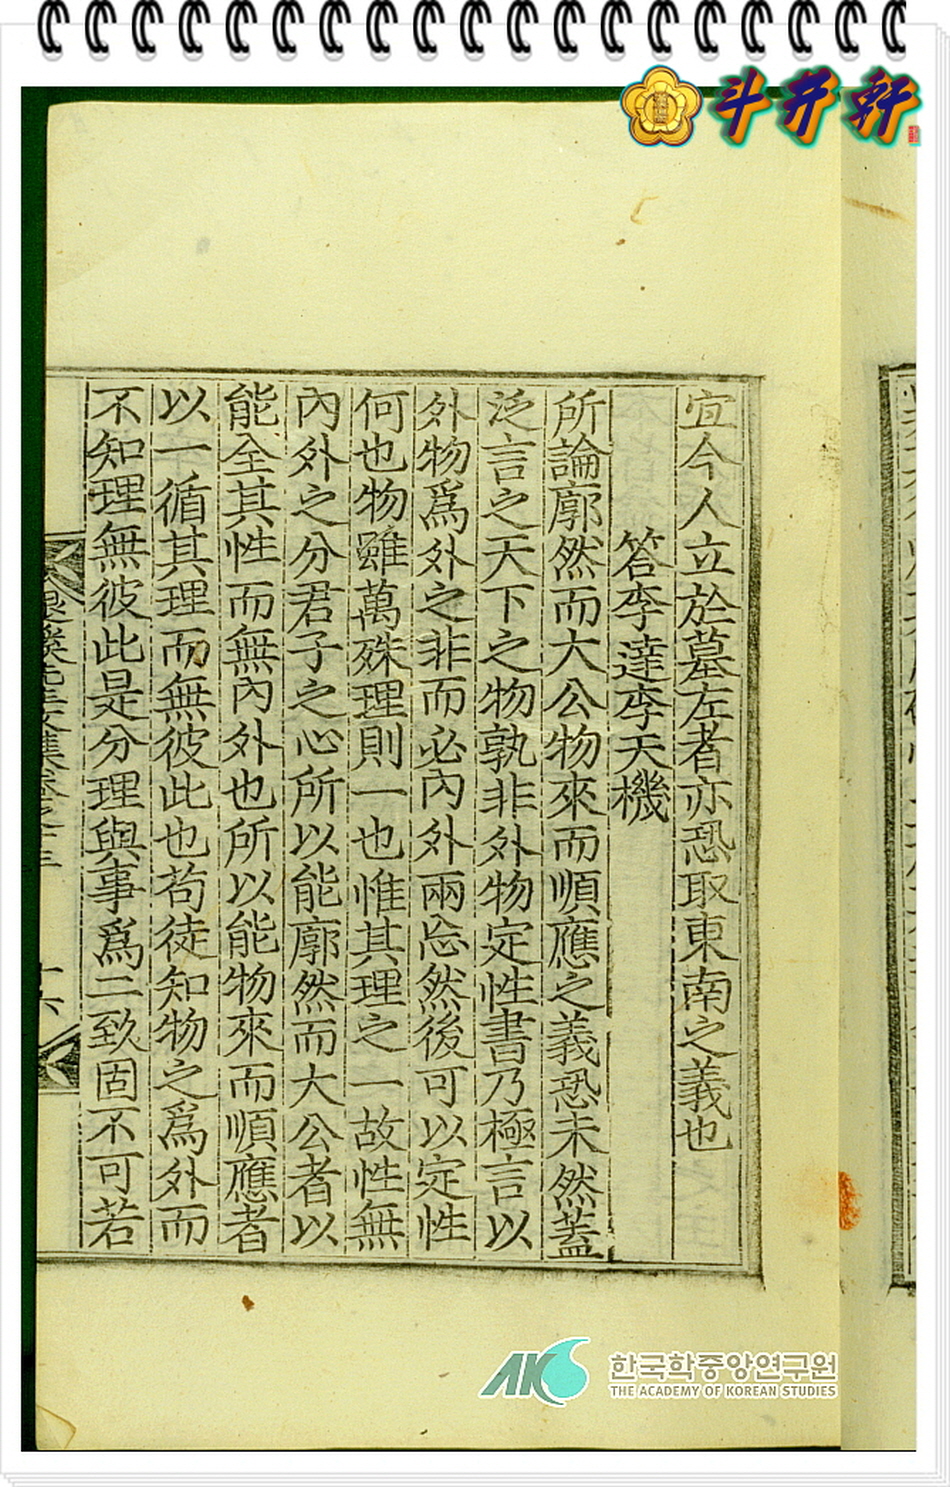 斗井軒
宜今人立於墓左者亦恐取東南之義也
答李達李天機
所論廓然而大公物來而順應之義恐未然蓋
泛言之天下之物孰非外物定性書乃極言以
外物爲外之非而必內外兩忘然後可以定性
何也物雖萬殊理則一也惟其理之一故性無
內外之分君子之心所以能廓然而大公者以
能全其性而無內外也所以能物來而順應者
以一循其理而無彼此也苟徒知物之爲外而
不知理無彼此是分理與事爲二致固不可若
AKS 한국학중앙연구원
THE ACADEMY OF KOREAN STUDIES